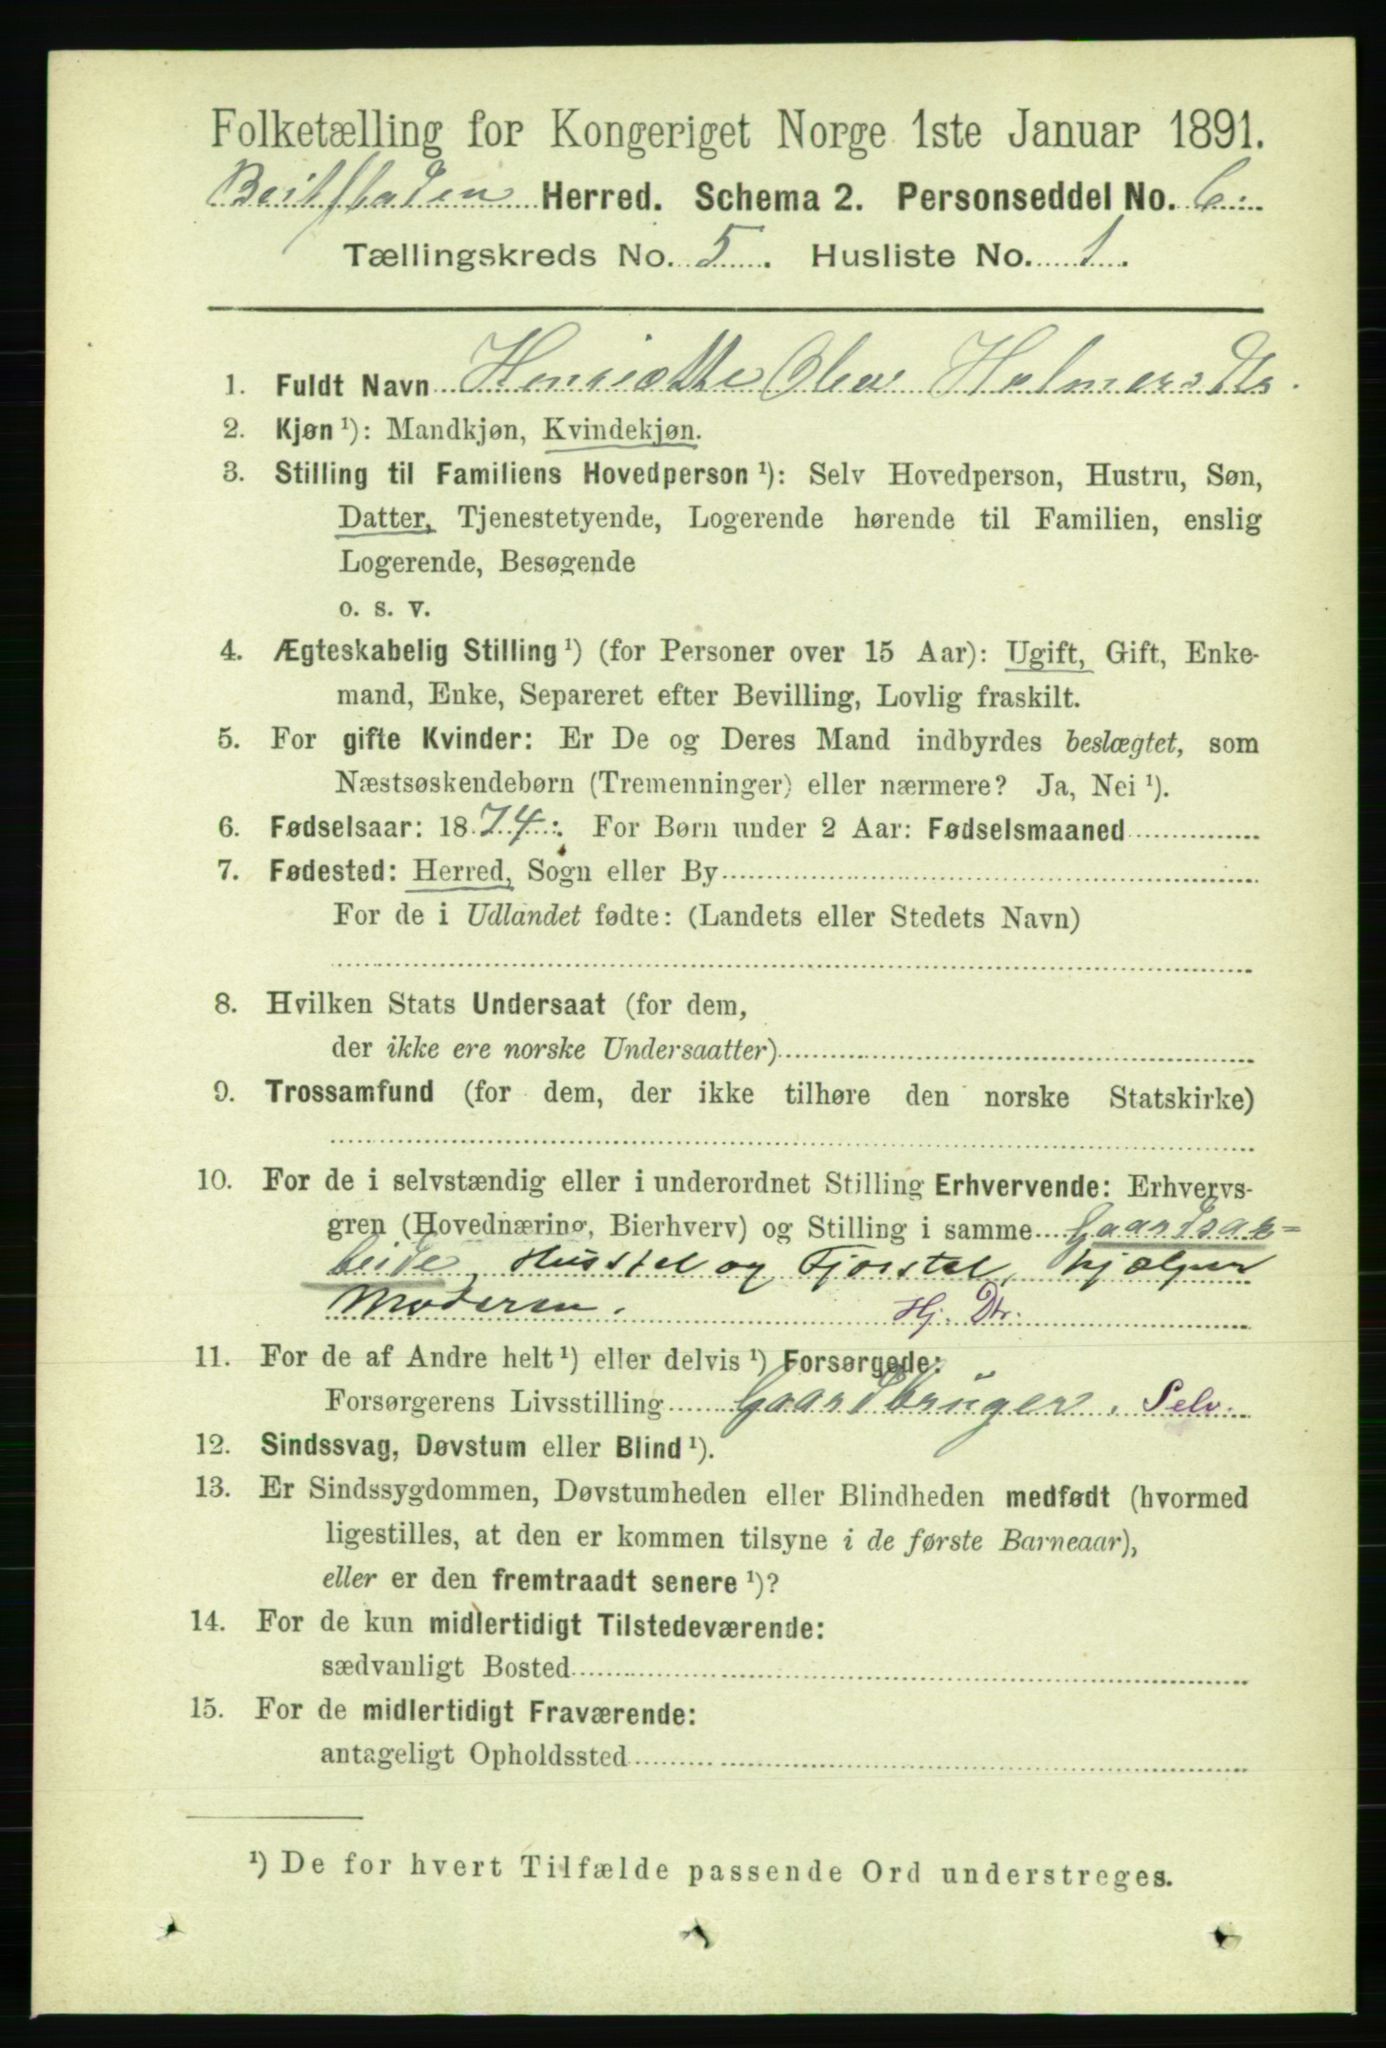 Folketælling for Kongeriget Norge 1ste Januar 1891.
Beitstaden Herred. Schema 2. Personseddel No. 6.
Tællingskreds No. 5. Husliste No. 1.
1. Fuldt Navn Henriette Olea Holmersdtr.
2. Kjøn ¹): Mandkjøn, Kvindekjøn.
3. Stilling til Familiens Hovedperson ¹): Selv Hovedperson, Hustru, Søn,
Datter, Tjenestetyende, Logerende hørende til Familien, enslig
Logerende, Besøgende
o. s. v.
4. Ægteskabelig Stilling ¹) (for Personer over 15 Aar): Ugift, Gift, Enke-
mand, Enke, Separeret efter Bevilling, Lovlig fraskilt.
5. For gifte Kvinder: Er De og Deres Mand indbyrdes beslægtet, som
Næstsøskendebørn (Tremenninger) eller nærmere? Ja, Nei ¹).
6. Fødselsaar: 1874. For Børn under 2 Aar: Fødselsmaaned
7. Fødested: Herred, Sogn eller By
For de i Udlandet fødte: (Landets eller Stedets Navn)
8. Hvilken Stats Undersaat (for dem,
der ikke ere norske Undersaatter)
9. Trossamfund (for dem, der ikke tilhøre den norske Statskirke)
10. For de i selvstændig eller i underordnet Stilling Erhvervende: Erhvervs-
gren (Hovednæring, Bierhverv) og Stilling i samme Gaardsar-
beide, Husstel og Fjorstel, hjælper
Moderen. Hj. Dtr.
11. For de af Andre helt ¹) eller delvis ¹) Forsørgede:
Forsørgerens Livsstilling Gaardbruger. Selv.
12. Sindssvag, Døvstum eller Blind ¹).
13. Er Sindssygdommen, Døvstumheden eller Blindheden medfødt (hvormed
ligestilles, at den er kommen tilsyne i de første Barneaar),
eller er den fremtraadt senere ¹)?
14. For de kun midlertidigt Tilstedeværende:
sædvanligt Bosted
15. For de midlertidigt Fraværende:
antageligt Opholdssted
¹) De for hvert Tilfælde passende Ord understreges.